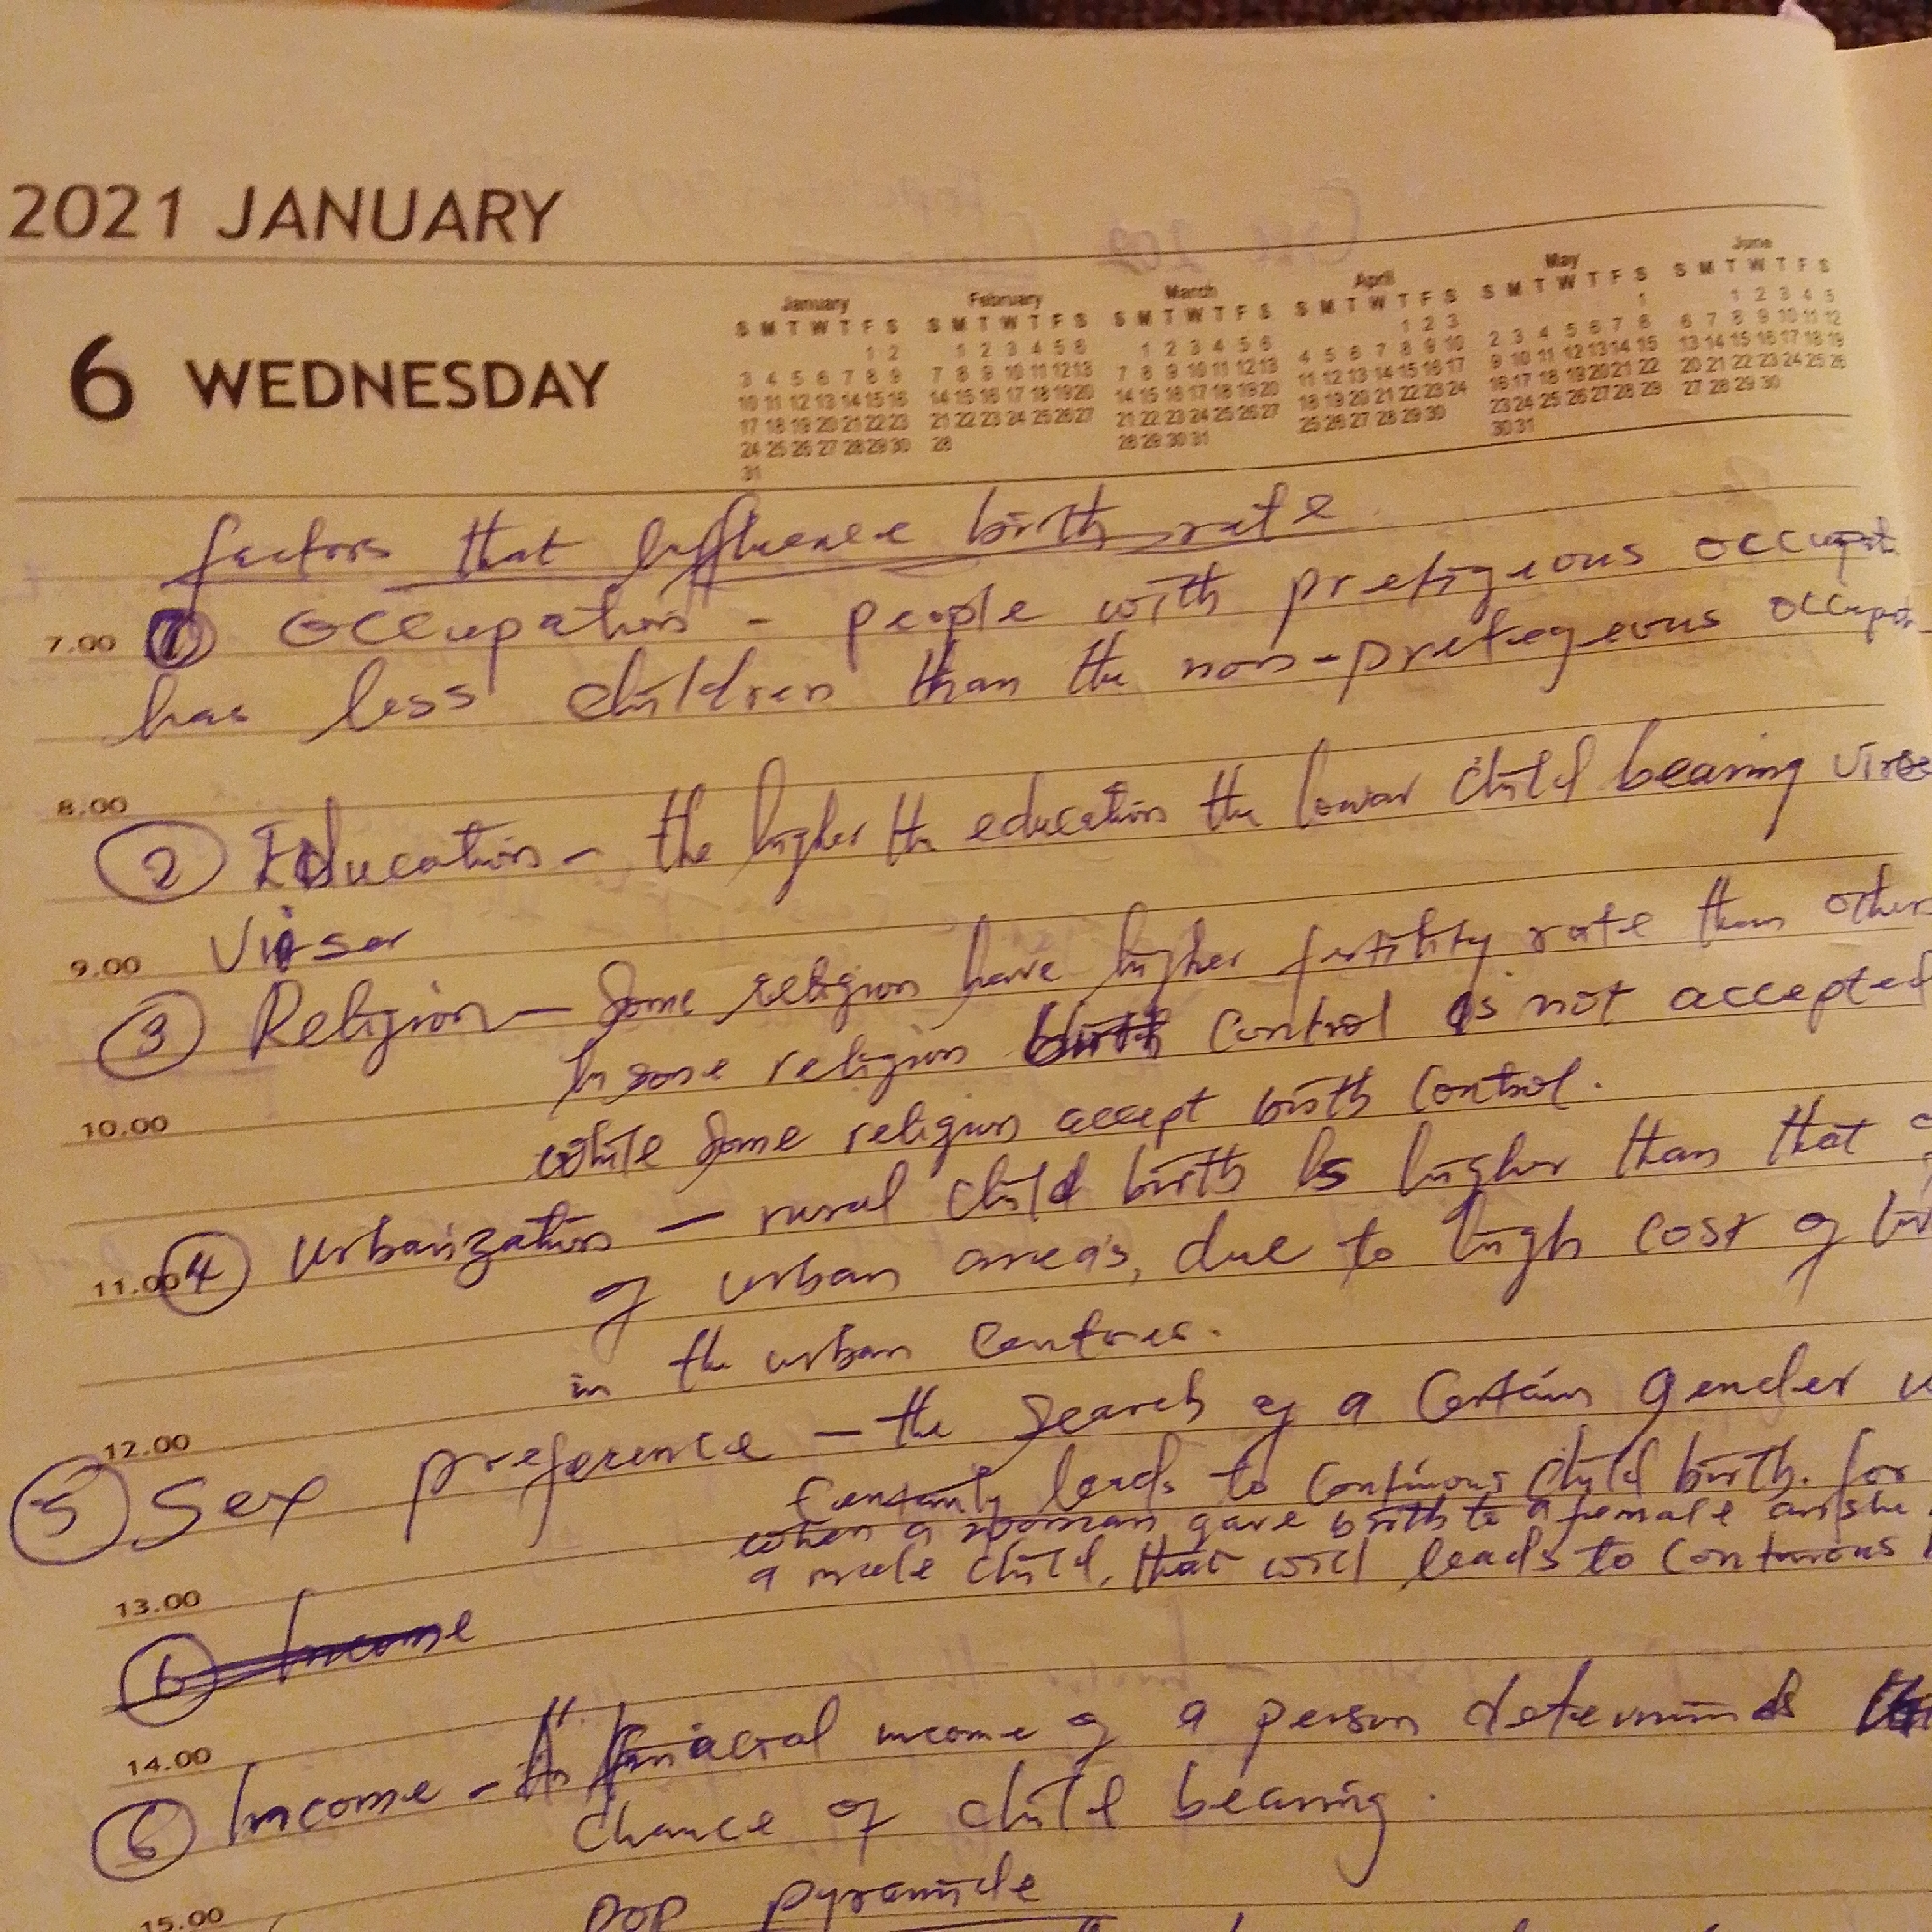 2021 JANUARY
6 WEDNESDAY
January February March April May June
S M T W T F S S M T W T F S S M T W T F S S M T W T F S S M T W T F S S M T W T F S
1 2 1 2 3 4 5 6 1 2 3 4 5 6 1 2 3 1 1 2 3 4 5
3 4 5 6 7 8 9 7 8 9 10 11 12 13 7 8 9 10 11 12 13 4 5 6 7 8 9 10 2 3 4 5 6 7 8 6 7 8 9 10 11 12
10 11 12 13 14 15 16 14 15 16 17 18 19 20 14 15 16 17 18 19 20 11 12 13 14 15 16 17 9 10 11 12 13 14 15 13 14 15 16 17 18 19
17 18 19 20 21 22 23 21 22 23 24 25 26 27 21 22 23 24 25 26 27 18 19 20 21 22 23 24 16 17 18 19 20 21 22 20 21 22 23 24 25 26
24 25 26 27 28 29 30 28 28 29 30 31 25 26 27 28 29 30 23 24 25 26 27 28 29 27 28 29 30
31 30 31
factors that Influence birth rate
7.00 1 Occupation - people with pretigeous occupat
has less children than the non-pretegeous occupat
8.00
2 Education - the higher the education the lower child bearing
9.00
3 Religion - Some religion have higher fertility rate than other
In some religion birth control is not accepted
10.00
while some religion accept birth control.
11.00 4 Urbanization - rural child birth is higher than that
of urban areas, due to high cost of
in the urban centres.
12.00
5 Sex preference - the search of a certain gender
leads to continous child birth. for
when a woman gave birth to a female
a male child, that will leads to continous
13.00
6 Income
14.00
6 Income - financial income of a person determinds
chance of child bearing.
15.00
pop pyramide